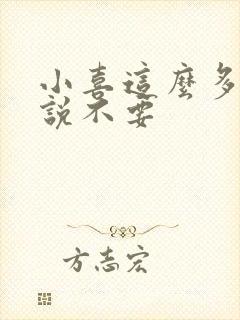 小喜這麼多
說不要
方志宏